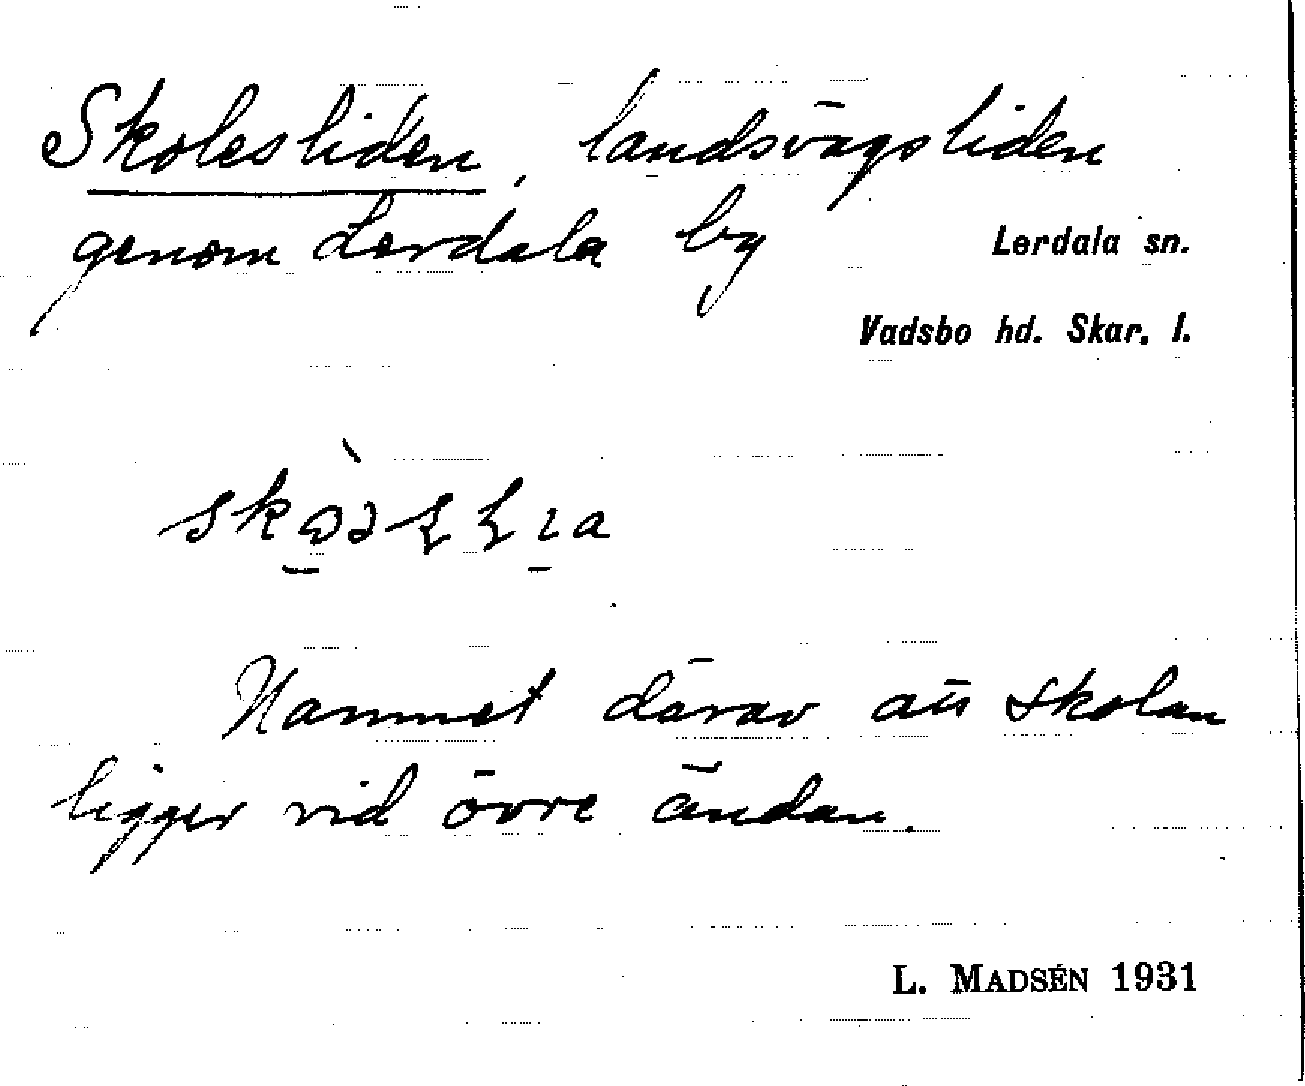 Skolesliden, landsvägsliden
genom Lerdala by
Lerdala sn.
Vadsbo hd. Skar. l.
Namnet därav att skolan
ligger vid övre ändan.
L. MADSÉN 1931